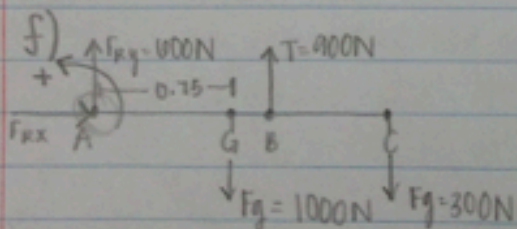 f)
+
FRy = 600N
T = 900N
0.75
FRX
A
G
B
C
Fg = 1000N
Fg = 300N